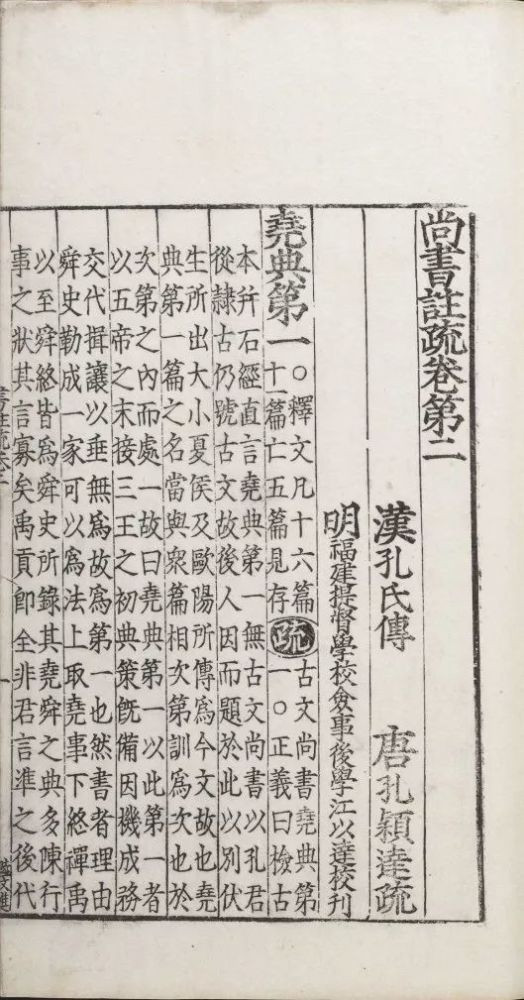 尚書註疏卷第二
漢孔氏傳 唐孔穎達疏
明福建提督學校僉事後學江以達校刊
堯典第一
○釋文凡十六篇
十一篇亡五篇見存
疏
古文尚書堯典第
一○正義曰檢古
本并石經直言堯典第一無古文尚書以孔君
從隸古仍號古文故後人因而題於此以別伏
生所出大小夏侯及歐陽所傳爲今文故也堯
典第一篇之名當與衆篇相次第訓爲次也於
次第之內而處一故曰堯典第一以此第一者
以五帝之末接三王之初典策旣備因機成務
交代揖讓以垂無爲故爲第一也然書者理由
舜史勒成一家可以爲法上取堯事下終禪禹
以至舜終皆爲舜史所錄其堯舜之典多陳行
事之狀其言寡矣禹貢即全非君言準之後代
一